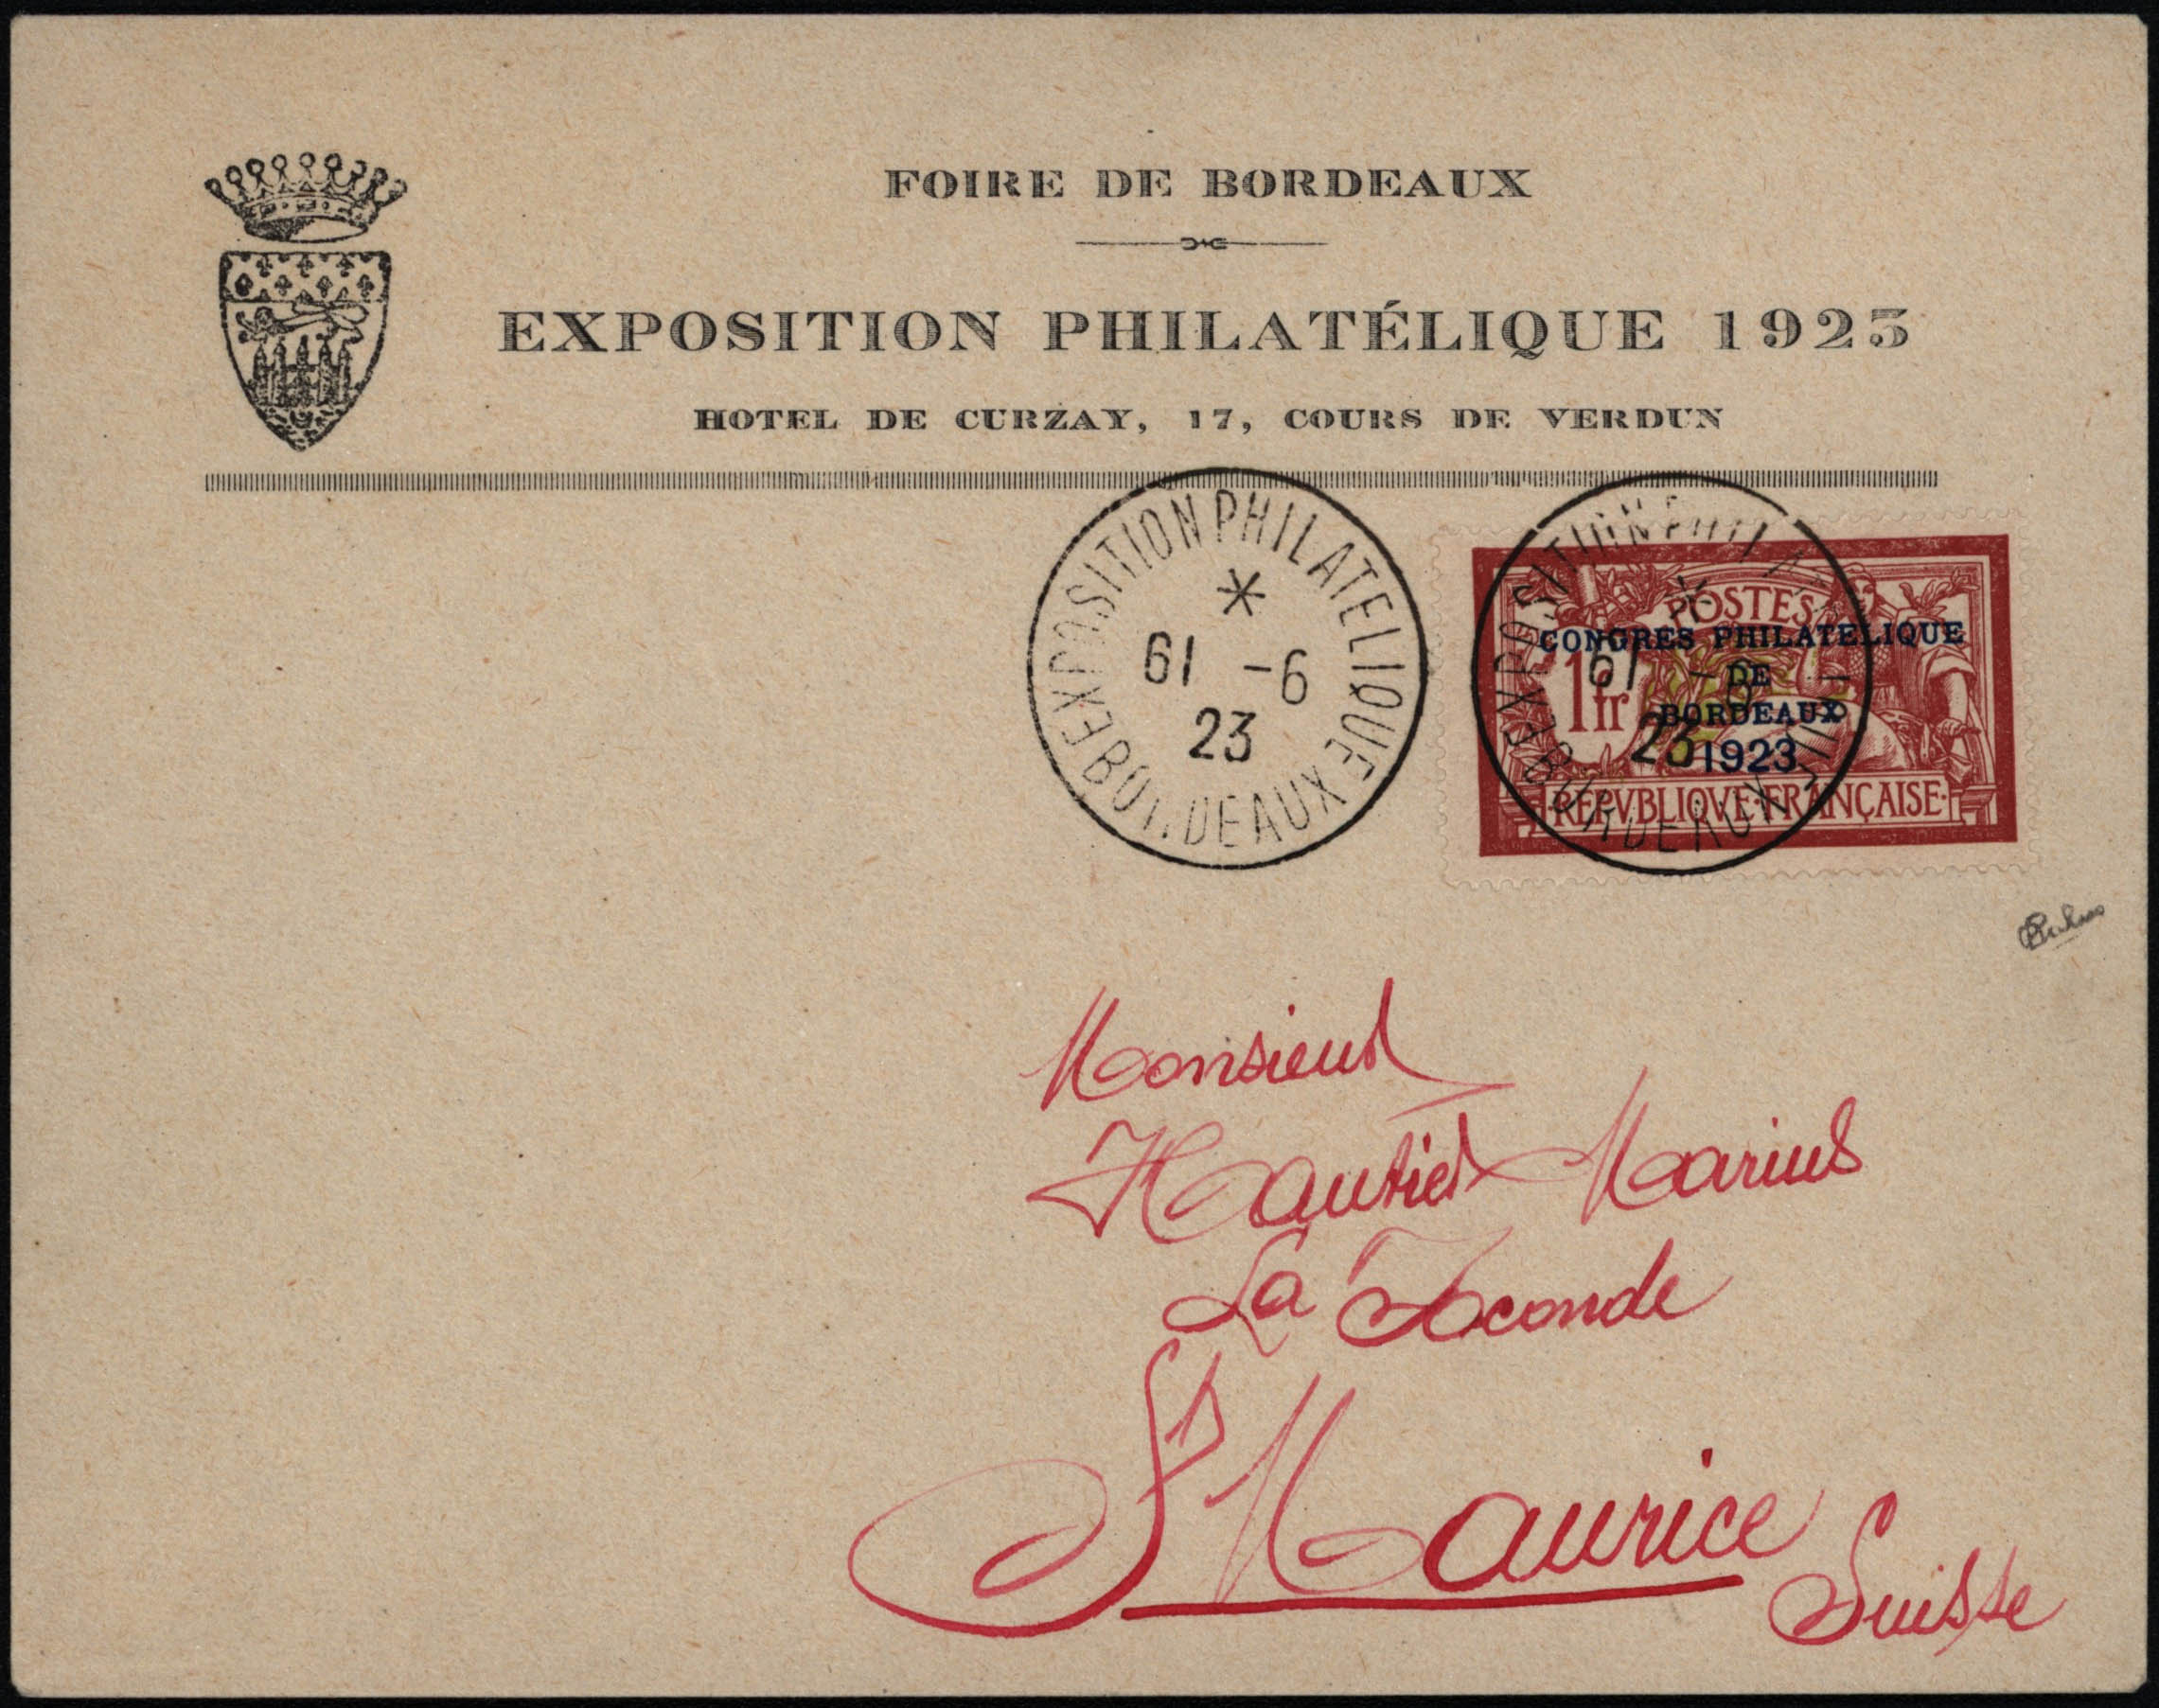 FOIRE DE BORDEAUX
EXPOSITION PHILATÉLIQUE 1923
HOTEL DE CURZAY, 17, COURS DE VERDUN
EXPOSITION PHILATELIQUE
61 -6
23
BORDEAUX
EXPOSITION PHILATELIQUE
61 -6
23
BORDEAUX
POSTES
CONGRES PHILATELIQUE
DE
BORDEAUX
1923
1 fr
REPVBLIQVE·FRANÇAISE·
Monsieur
Hautier Marius
La Joconde
St Maurice
Suisse